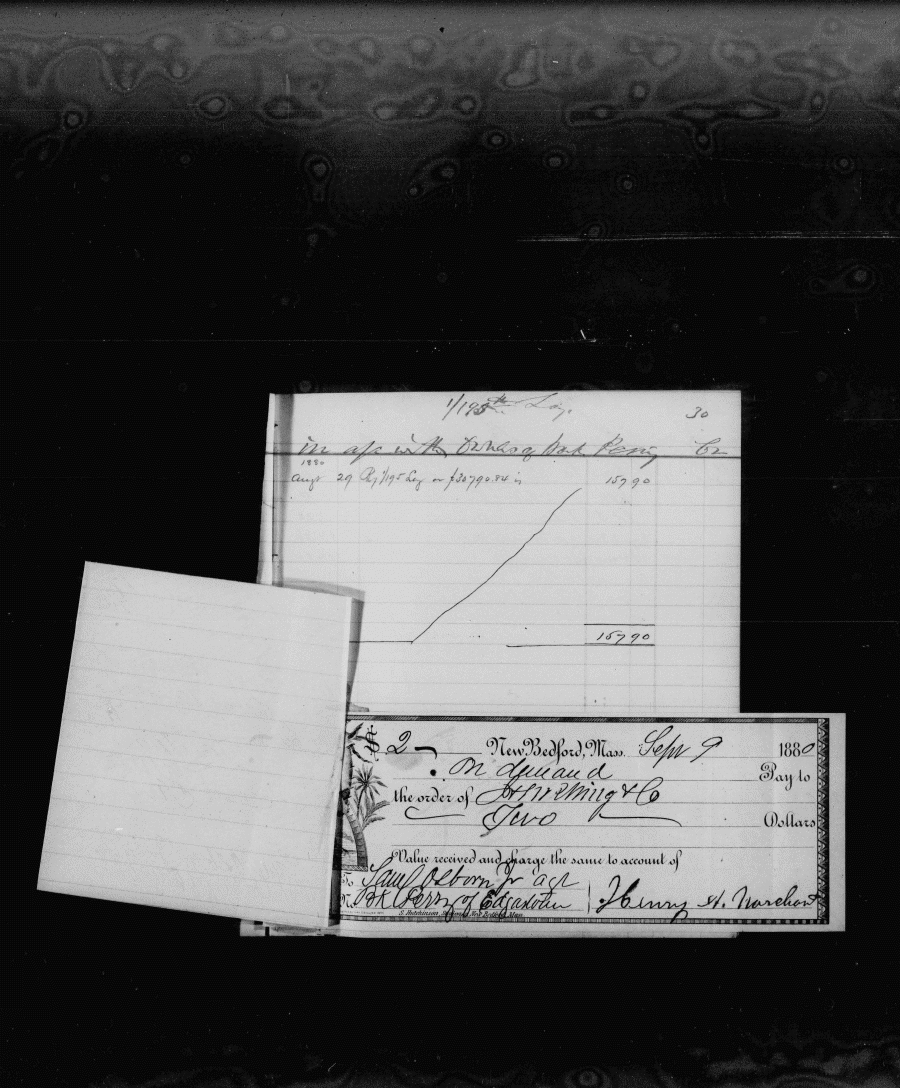 1/195th Lay.
30
in a/c with Owners of Bark Perry Cr
1880
Augt 29 By 1/195 Lay on $30790.84 is 157 90
157 90
$ 2 — New Bedford, Mass. Sept 9 1880
On demand Pay to
the order of & Co
Two Dollars
Value received and charge the same to account of
To Saml Osborn Jr agt
No. Bk Perry of Edgartown Henry A. Marchant
S. Hutchinson New Bedford, Mass.